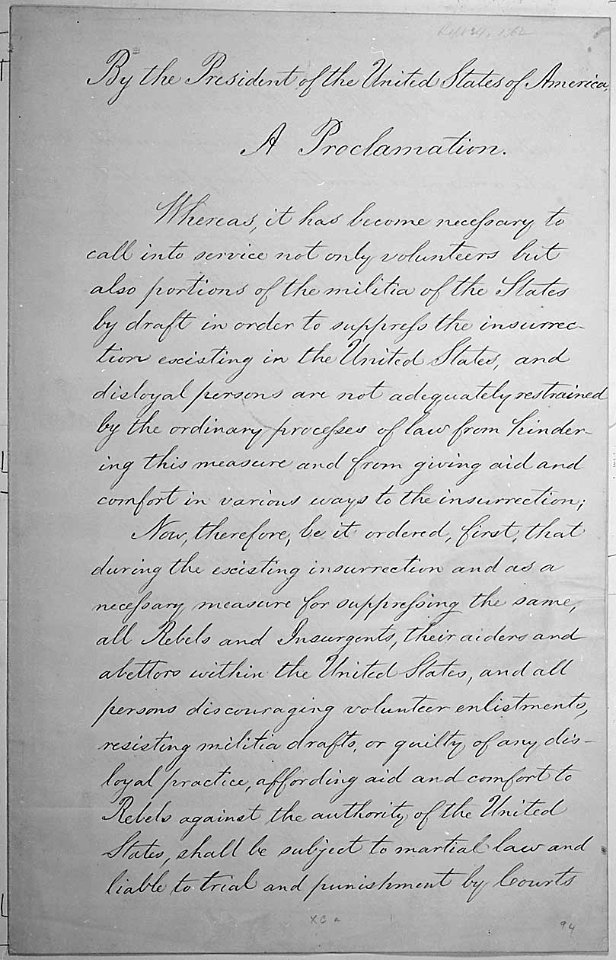 Sept 24, 1862
By the President of the United States of America,
A Proclamation.
Whereas, it has become necessary to
call into service not only volunteers but
also portions of the militia of the States
by draft in order to suppress the insurrec-
tion existing in the United States, and
disloyal persons are not adequately restrained
by the ordinary processes of law from hinder-
ing this measure and from giving aid and
comfort in various ways to the insurrection;
Now, therefore, be it ordered, first, that
during the existing insurrection and as a
necessary measure for suppressing the same,
all Rebels and Insurgents, their aiders and
abettors within the United States, and all
persons discouraging volunteer enlistments,
resisting militia drafts, or guilty of any dis-
loyal practice, affording aid and comfort to
Rebels against the authority of the United
States, shall be subject to martial law and
liable to trial and punishment by Courts
94